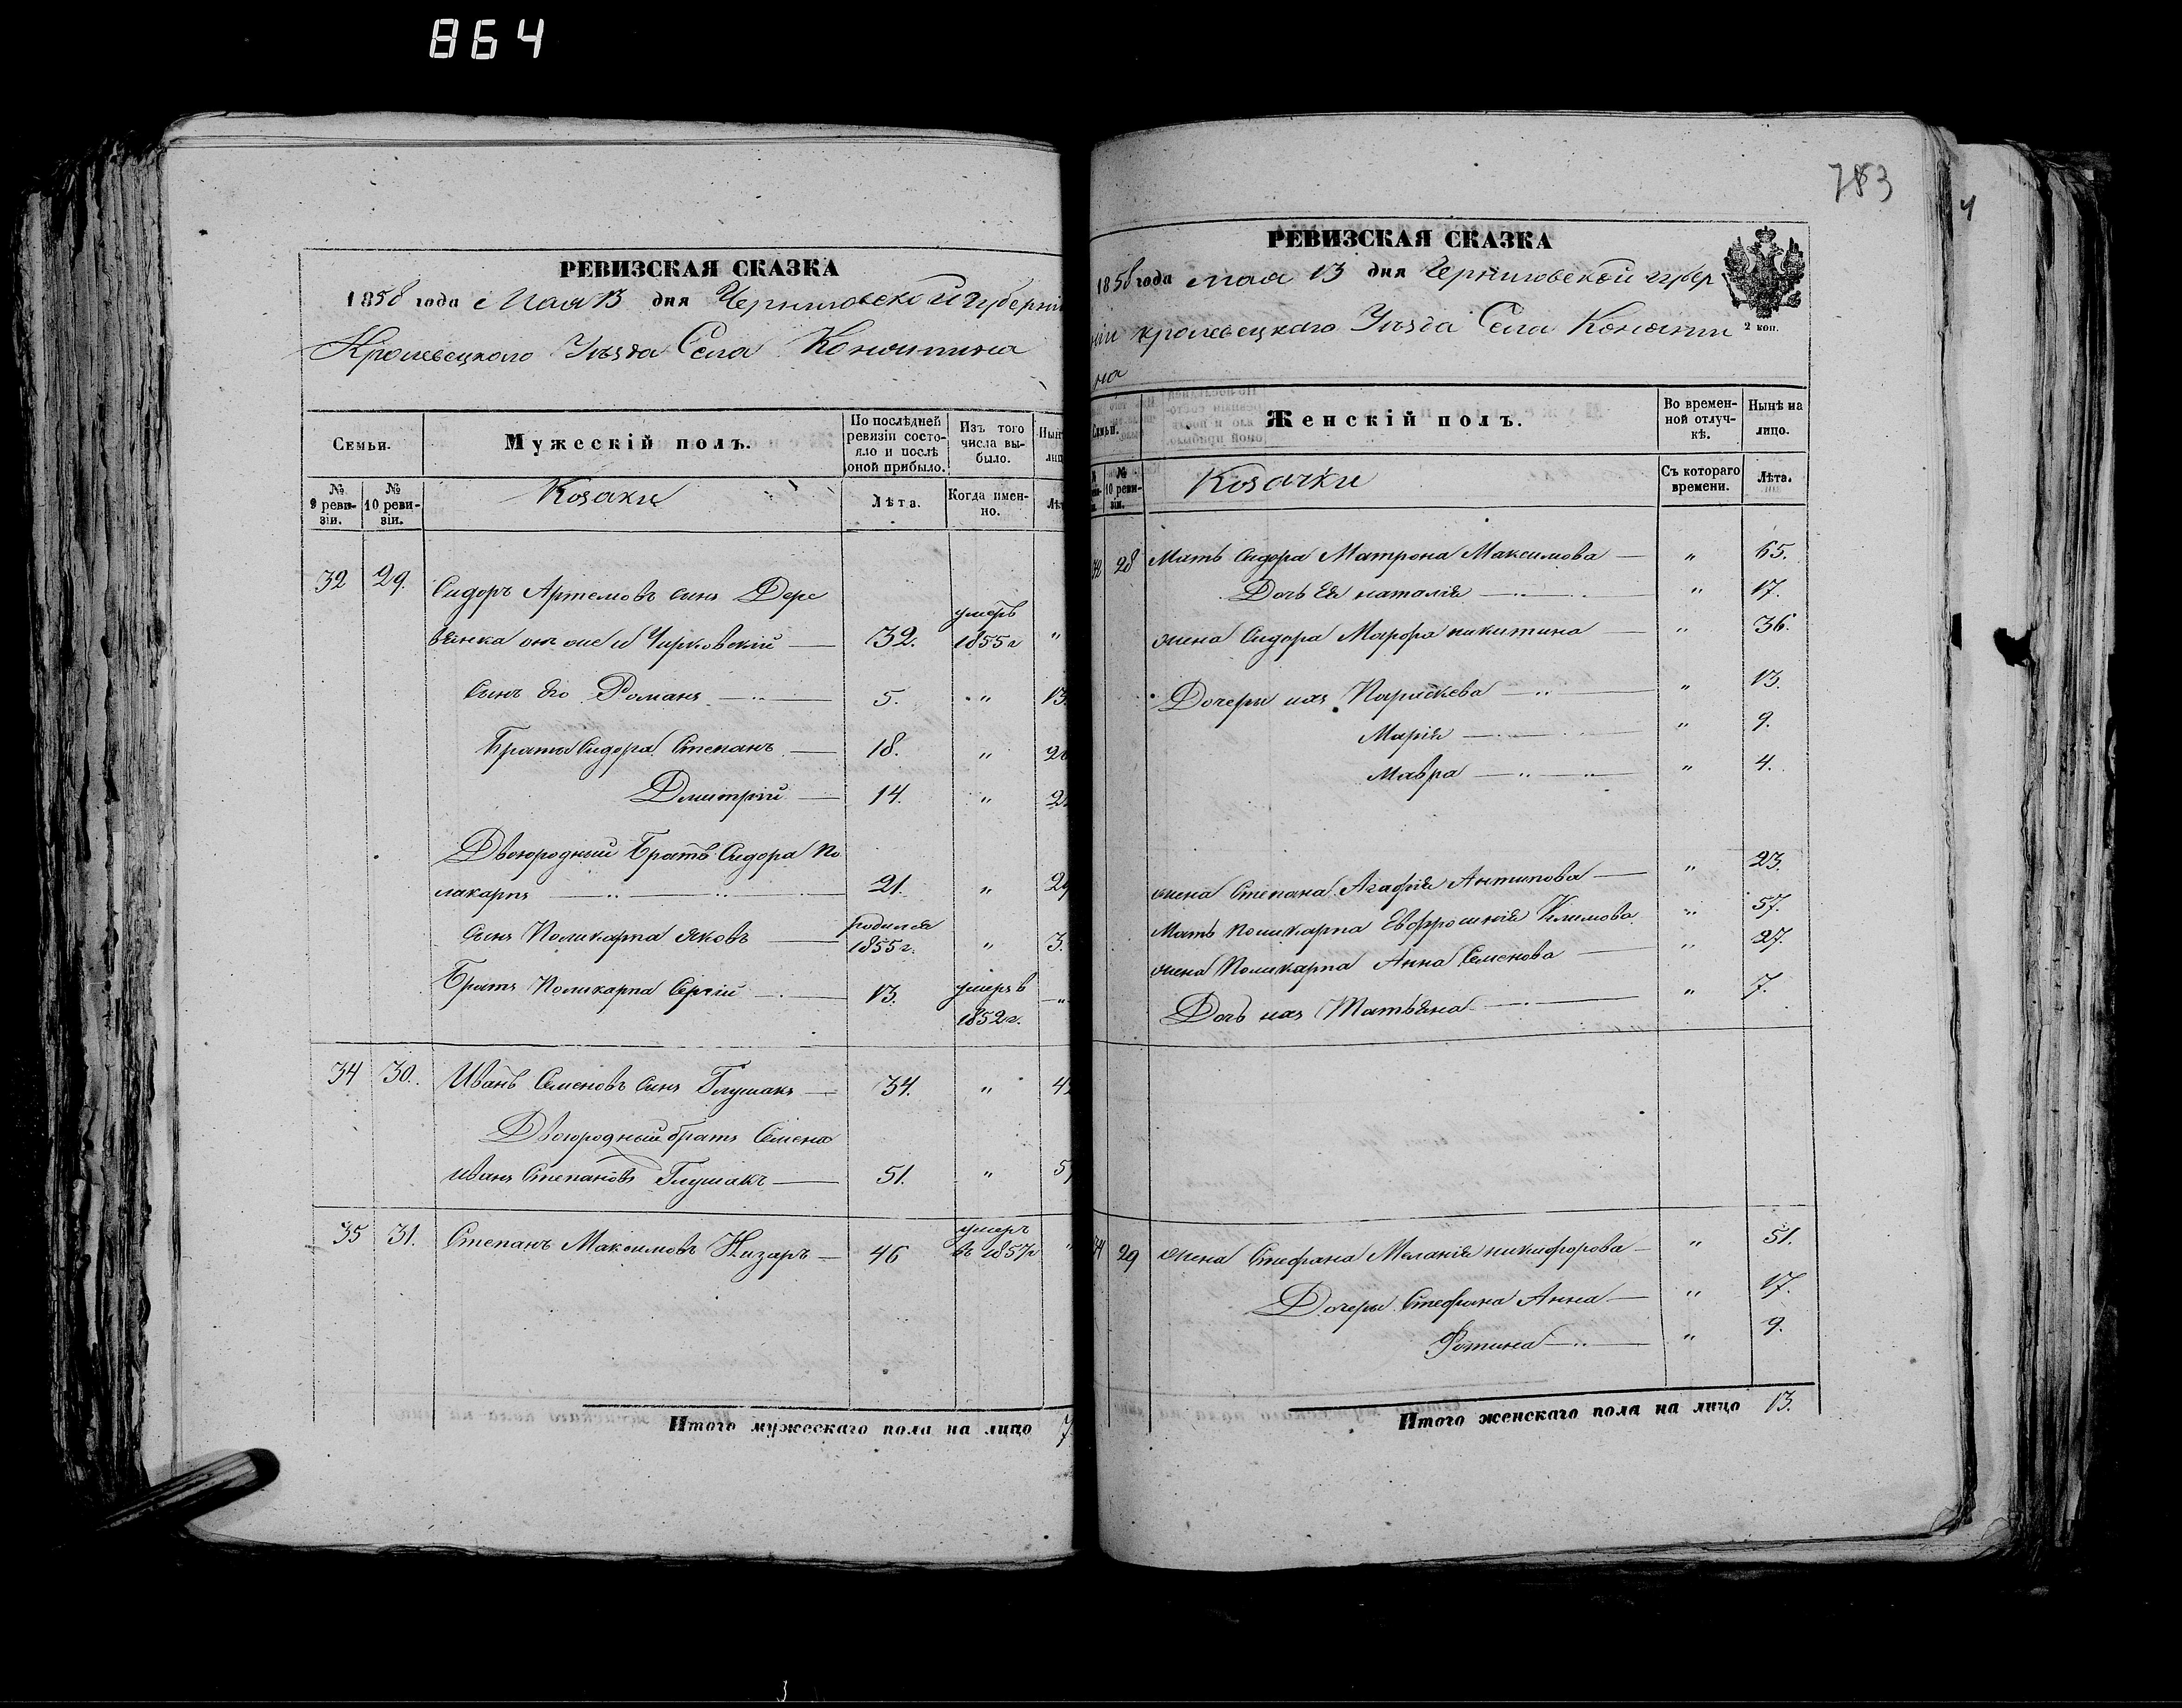 864
РЕВИЗСКАЯ СКАЗКА
1858 года Мая 13 дня Черниговской Губерни
Кролевецкого Уезда Села Конотипа
Семьи.
Мужескій полъ.
По послѣдней ревизіи состояло и послѣ оной прибыло.
Изъ того числа выбыло.
Нын
лиц
№ 9 ревизіи.
№ 10 ревизіи.
Козаки
Лѣта.
Когда именно.
Лѣ
32 29. Сидоръ Артемовъ сынъ Дере
вянка онъ же и Чирковскій — 32. умеръ 1855 г "
Сынъ Его Романъ — 5. " 13.
Братья Сидора Степанъ — 18. " 2
Дмитрій — 14. " 2
Двоюродный Братъ Сидора По
ликарпъ — 21. " 29
Сынъ Поликарпа Яковъ — родился 1855 г. " 3.
Братъ Поликарпа Сергій — 13. умеръ в 1852 г. "
34 30. Иванъ Семеновъ сынъ Глушакъ — 34. " 4
Двоюродный братъ Семена
Иванъ Степановъ Глушакъ — 51. " 5
35 31. Степанъ Максимовъ Низаръ — 46 умеръ въ 1857 г "
Итого мужескаго пола на лицо 7
783
4
РЕВИЗСКАЯ СКАЗКА
1858 года мая 13 дня Черниговской губер
ніи Кролевецкаго Уезда Села
на
2 коп.
Семьи.
Женскій полъ.
Во временной отлучкѣ.
Нынѣ на лицо.
№ 10 ревизіи.
Козачки
Съ котораго времени.
Лѣта.
32 28 Мать Сидора Матрона Максимова — " 65.
Дочь Ея наталія — " 17.
жена Сидора Марфа никитина — " 36.
Дочери ихъ Параскева — " 13.
Марія — " 9.
Мавра — " 4.
жена Степана Агафія Антипова — " 23.
Мать поликарпа Евфросинія Климова " 57.
жена Поликарпа Анна Семенова — " 27.
Дочь ихъ Татьяна — " 7.
34 29 жена Стефана Меланія никифорова — " 51.
Дочери Стефана Анна — " 17.
Фотина — " 9.
Итого женскаго пола на лицо 13.